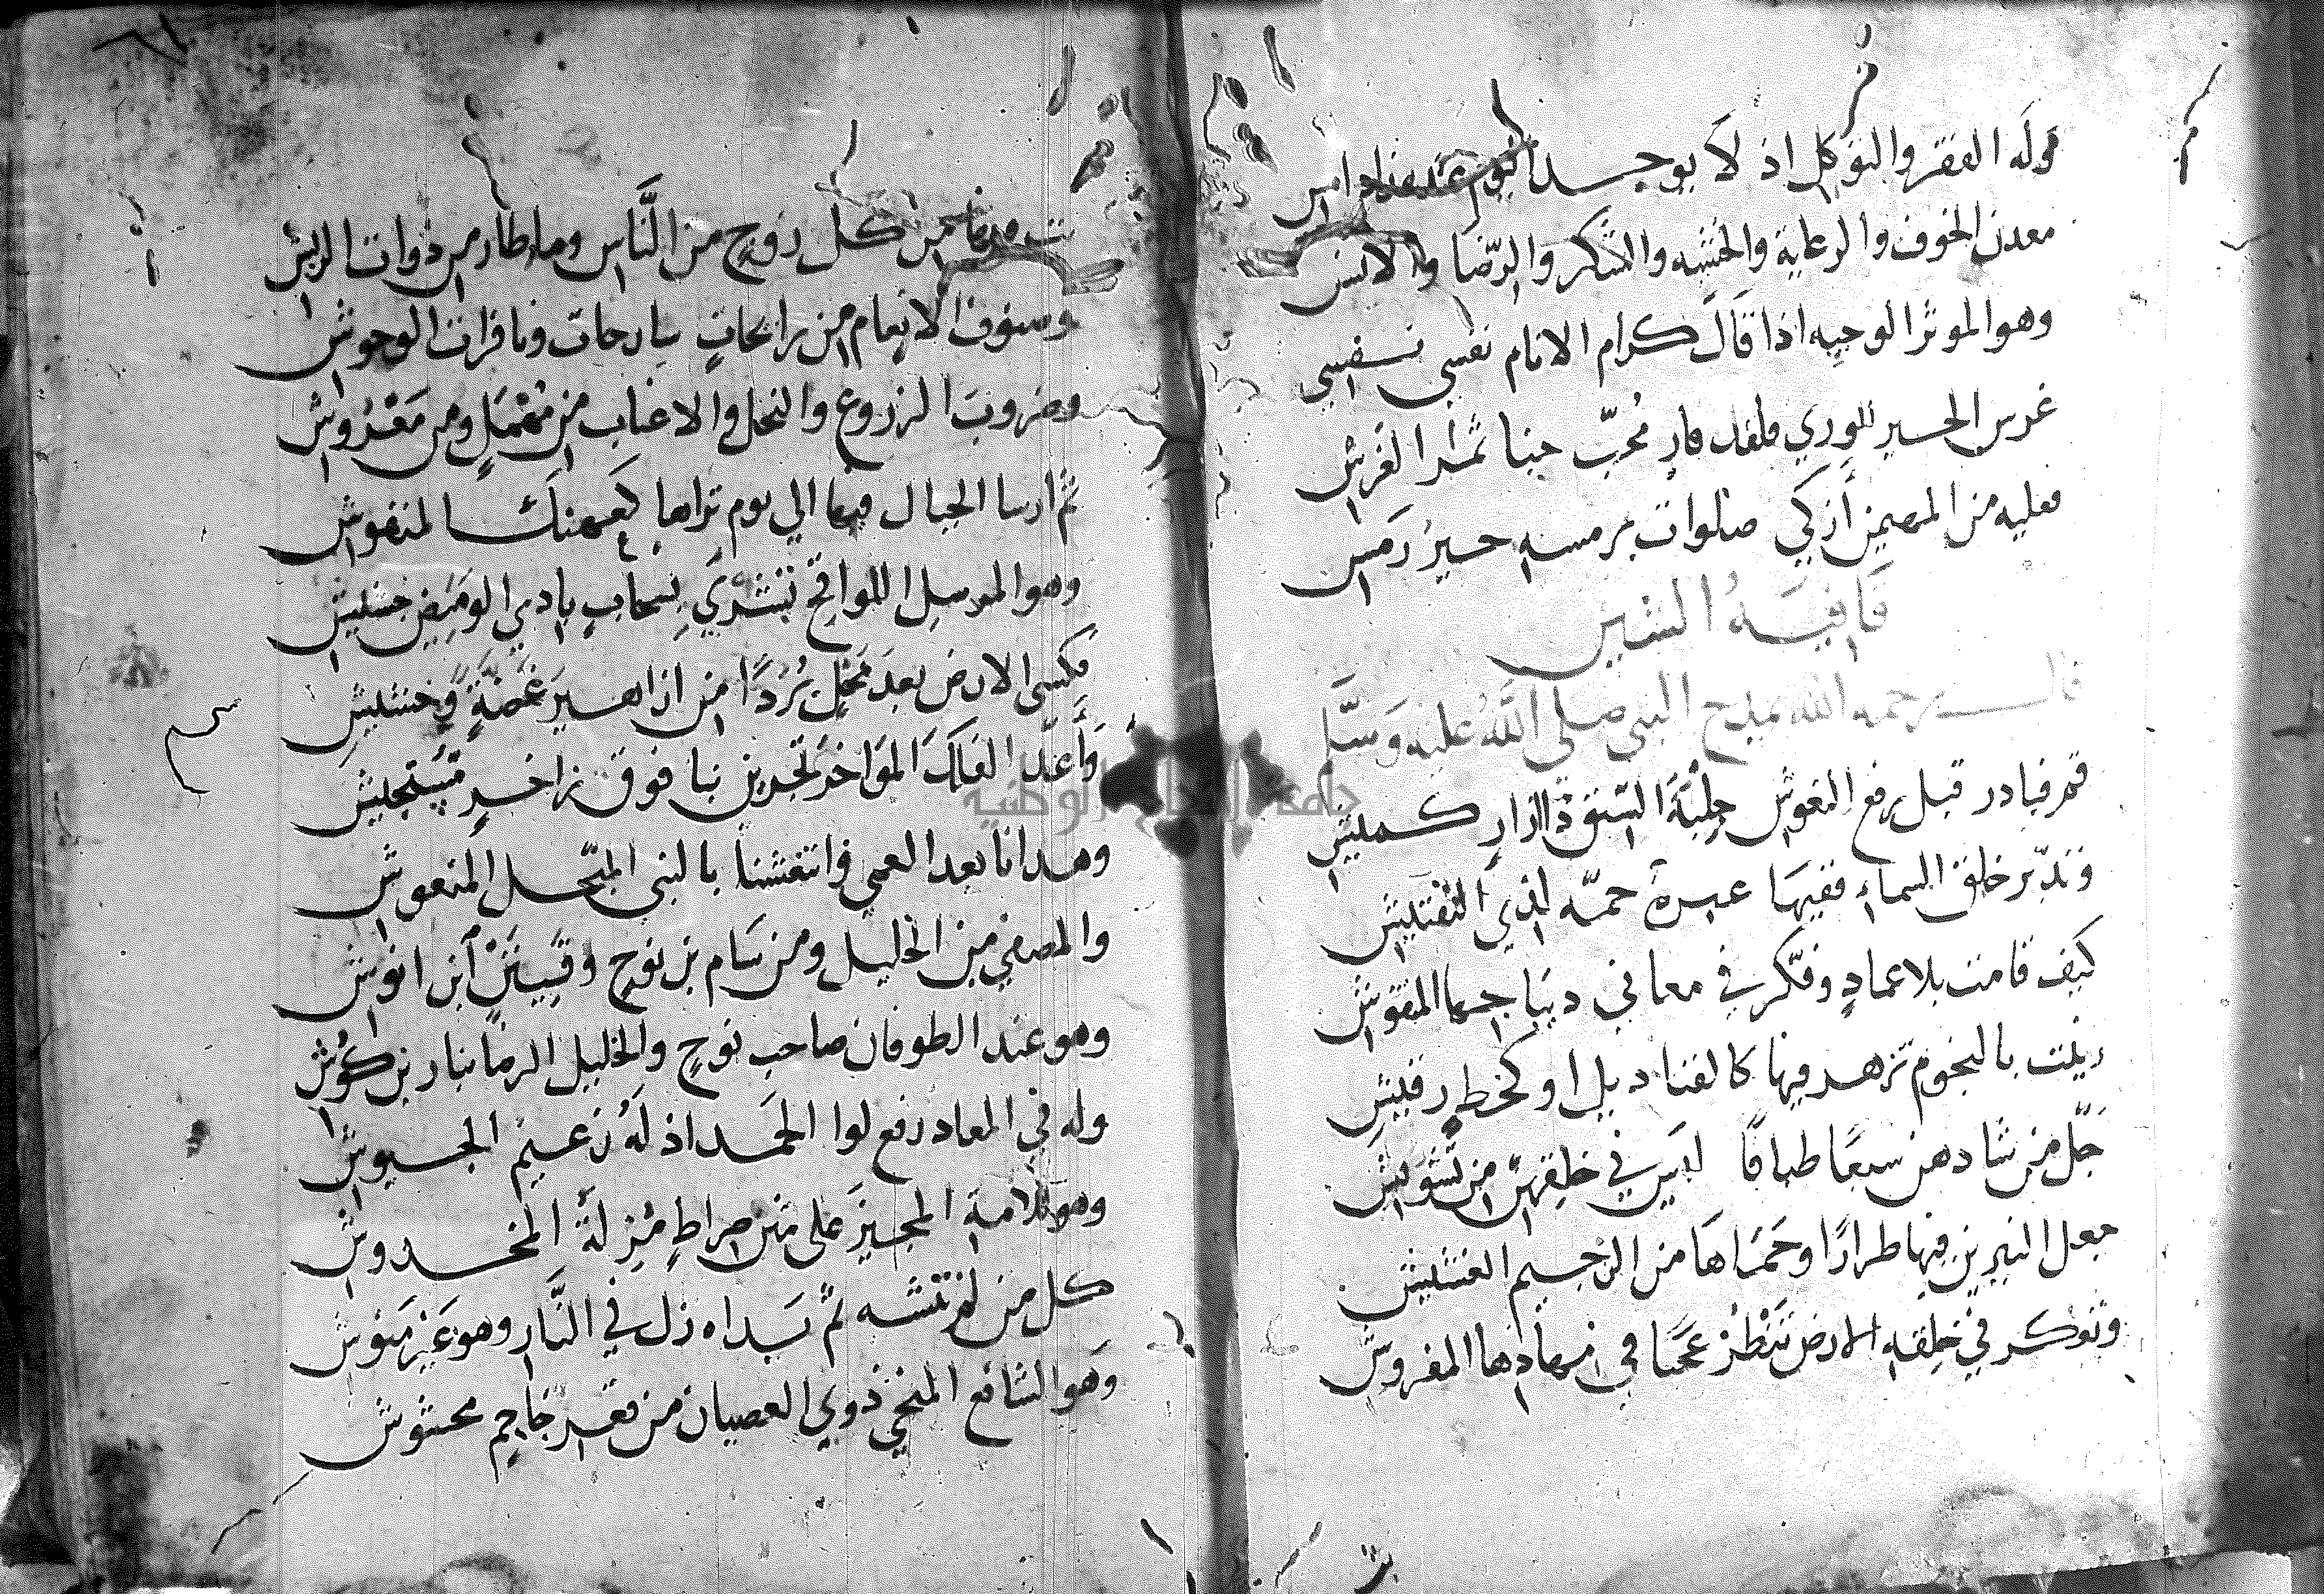 وله الفقر والتوكل اذ لا يوجد اليوم عنده زاد امس
معدن الخوف والرعاية والخشيه والشكر والرّضا والانس
وهو الموثر الوجيه اذا قال كرام الانام نفسى نفسي
غرس الخير للوري فلقد فاز مُحبّ جنا ثمار الغرس
فعليه من المهيمن أزكي صلوات برمسه خير رمس
قافيه الشين
قال رحمه الله يمدح النبي صلى الله عليه وسلم
قم فبادر قبل رفع النعوش حلبة السبق ذا ازار كميش
وتدبّر خلق السماء ففيها عبرة جمّه لذي التفتيش
كيف قامت بلا عمادٍ وفكّر في معاني ديباجها المنقوش
زينت بالنجوم تزهر فيها كالقناديل او كخط رقيش
جلّ من شادهن سبعًا طباقًا ليس في خلقهنّ من تشويش
جعل النيرين فيها طرازًا وحماها من الرجيم الغشيش
وتفكر في خلقه الارض تنظر عجبا في مهادها المفروش
بث فيها من كل زوج من النّاس وما طار من ذوات الريش
وصنوف الانعام من رائحاتٍ سارحات ونافرات الوحوش
وضروب الزروع والنخل والاعناب من مهملٍ ومن معروش
ثم ارسا الجبال فيها الي يوم تراها كعهنك المنفوش
وهو المرسل اللواقح تنشري سحابٍ بادي الوميض خشيش
فكسى الارض بعد محلٍ بُردًا من ازاهير غضّةٍ وحشيش
وأعدّ الفلك المواخر تجرين بنا فوق زاخرٍ مستجيش
وهدانا بعد العمي وانتعشنا بالنبي المبجل المنعوش
والمصفي من الخليل ومن سام بن نوح وقينن ابن انوش
وهو عند الطوفان صاحب نوحٍ والخليل الرما بنار بن كوش
وله في المعاد رفع لوا الحمد اذ له زعيم الجيوش
وهو للامة المجيز على متن صراطٍ مزلة المخدوش
كل من لم تنشه ثم يداه زل في النّار وهو غير منوش
وهو الشافع المنجي ذوي العصيان من قعر جاحم محشوش
جامعة النجاح الوطنية